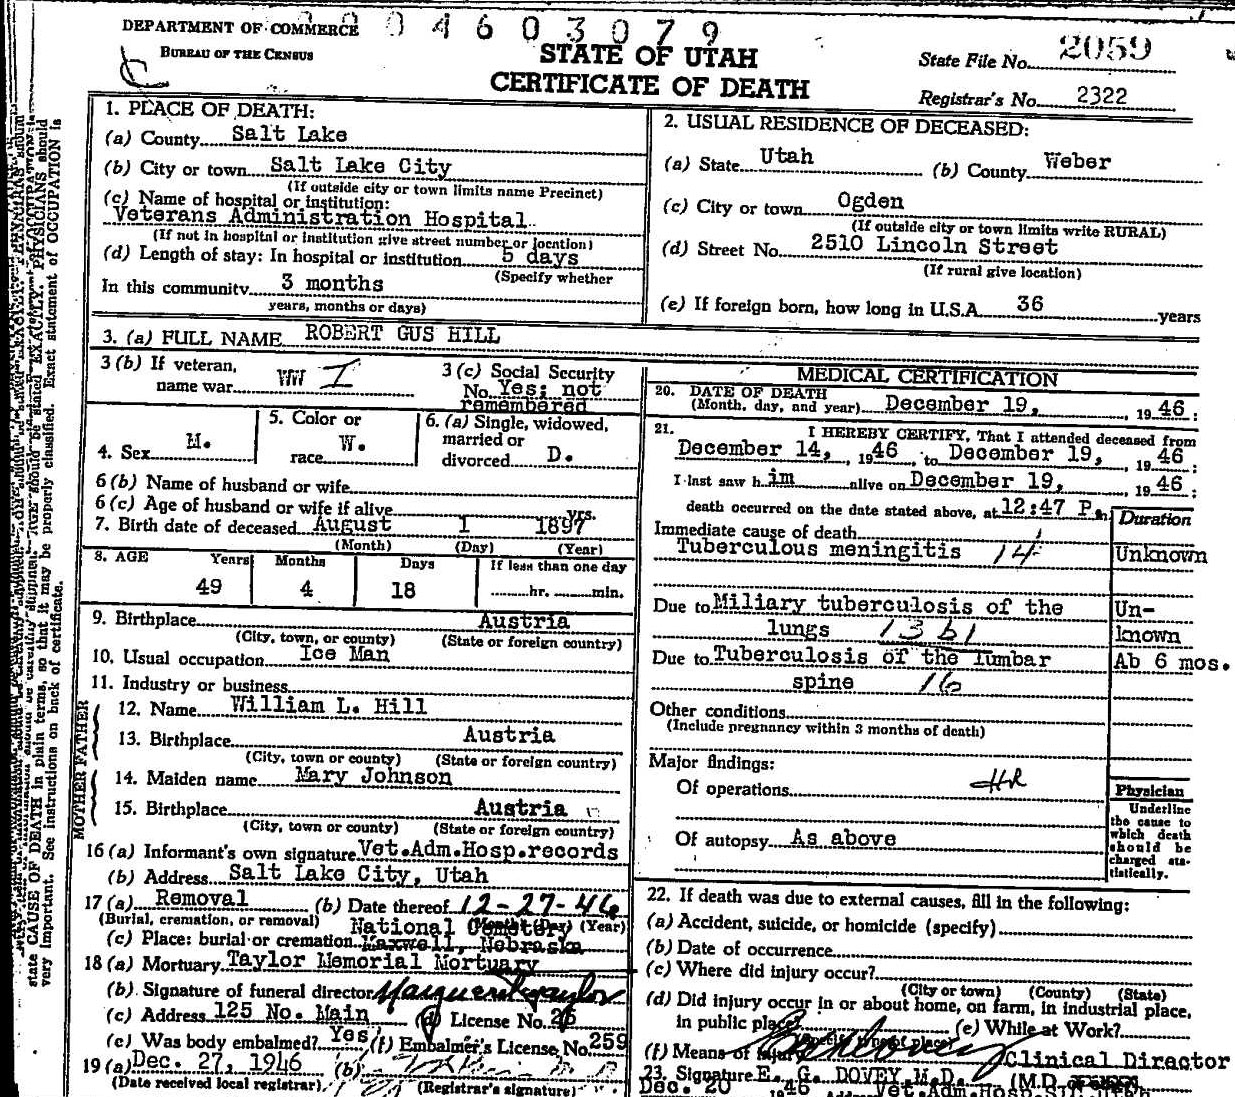 0 4 6 0 3 0 7 9
DEPARTMENT OF COMMERCE
BUREAU OF THE CENSUS
STATE OF UTAH
CERTIFICATE OF DEATH
State File No. 2059
Registrar's No. 2322
1. PLACE OF DEATH:
(a) County Salt Lake
(b) City or town Salt Lake City
(If outside city or town limits name Precinct)
(c) Name of hospital or institution:
Veterans Administration Hospital
(If not in hospital or institution give street number or location)
(d) Length of stay: In hospital or institution 5 days
(Specify whether
In this community 3 months
years, months or days)
2. USUAL RESIDENCE OF DECEASED:
(a) State Utah (b) County Weber
(c) City or town Ogden
(If outside city or town limits write RURAL)
(d) Street No. 2510 Lincoln Street
(If rural give location)
(e) If foreign born, how long in U.S.A. 36 years
3. (a) FULL NAME ROBERT GUS HILL
3 (b) If veteran,
name war WW I
3 (c) Social Security
No. Yes; not
remembered
4. Sex M.
5. Color or
race W.
6. (a) Single, widowed,
married or
divorced D.
6 (b) Name of husband or wife
6 (c) Age of husband or wife if alive yrs.
7. Birth date of deceased August 1 1897
(Month) (Day) (Year)
8. AGE Years Months Days If less than one day
49 4 18 hr. min.
9. Birthplace Austria
(City, town, or county) (State or foreign country)
10. Usual occupation Ice Man
11. Industry or business
FATHER
12. Name William L. Hill
13. Birthplace Austria
(City, town or county) (State or foreign country)
MOTHER
14. Maiden name Mary Johnson
15. Birthplace Austria
(City, town or county) (State or foreign country)
16 (a) Informant's own signature Vet.Adm.Hosp.records
(b) Address Salt Lake City, Utah
17 (a) Removal (b) Date thereof 12-27-46
(Burial, cremation, or removal) (Month) (Day) (Year)
National Cemetery
(c) Place: burial or cremation Maxwell, Nebraska
18 (a) Mortuary Taylor Memorial Mortuary
(b) Signature of funeral director Marguerite Taylor
(c) Address 125 No. Main (d) License No. 26
(e) Was body embalmed? Yes (f) Embalmer's License No. 259
19 (a) Dec. 27, 1946 (b)
(Date received local registrar) (Registrar's signature)
MEDICAL CERTIFICATION
20. DATE OF DEATH
(Month, day, and year) December 19, , 19 46 :
21. I HEREBY CERTIFY, That I attended deceased from
December 14, , 19 46 , to December 19, , 19 46 ;
I last saw h im alive on December 19, , 19 46 ;
death occurred on the date stated above, at 12:47 P. m.
Duration
Immediate cause of death
Tuberculous meningitis 14 Unknown
Due to Miliary tuberculosis of the Un-
lungs 13 b1 known
Due to Tuberculosis of the lumbar Ab 6 mos.
spine 16
Other conditions
(Include pregnancy within 3 months of death)
Major findings:
Of operations HR
Of autopsy As above
Physician
Underline
the cause to
which death
should be
charged sta-
tistically.
22. If death was due to external causes, fill in the following:
(a) Accident, suicide, or homicide (specify)
(b) Date of occurrence
(c) Where did injury occur?
(City or town) (County) (State)
(d) Did injury occur in or about home, on farm, in industrial place,
in public place? (e) While at Work?
(Specify type of place)
(f) Means of injury Clinical Director
23. Signature E. G. DOVEY, M.D. (M.D.
Dec. 20 19 46 Vet.Adm.Hosp.
state CAUSE OF DEATH in plain terms, so that it may be properly classified. Exact statement of OCCUPATION is
very important. See instructions on back of certificate.